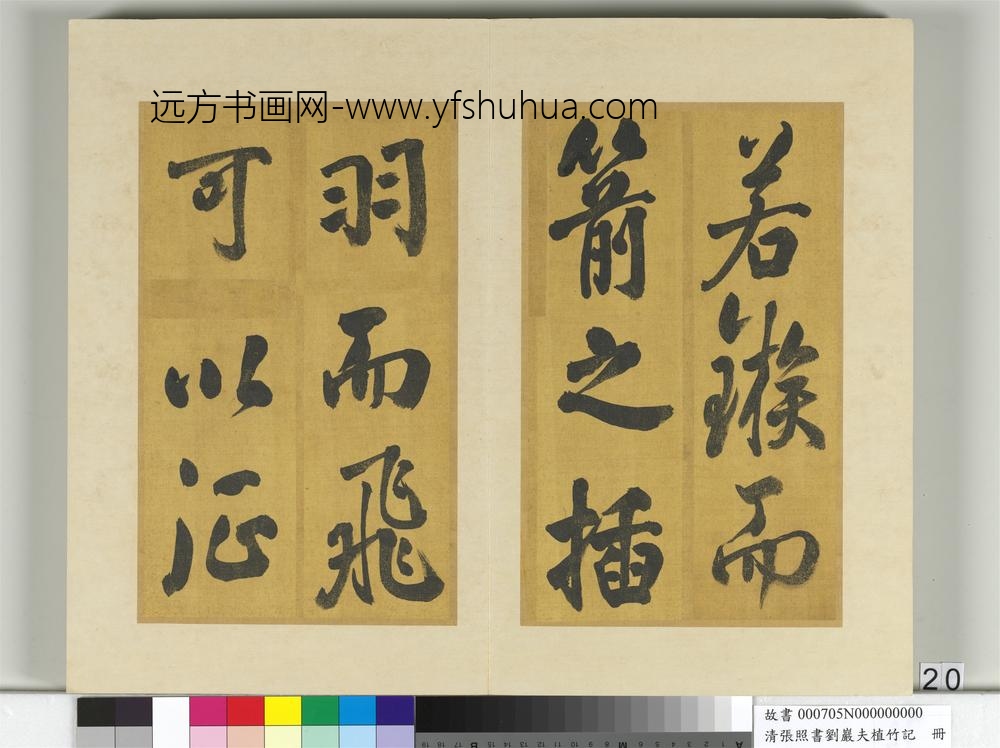 远方书画网-www.yfshuhua.com
若鏃而
箭之插
羽而飛
可以征
20
故書 000705N000000000
清張照書劉巖夫植竹記 冊